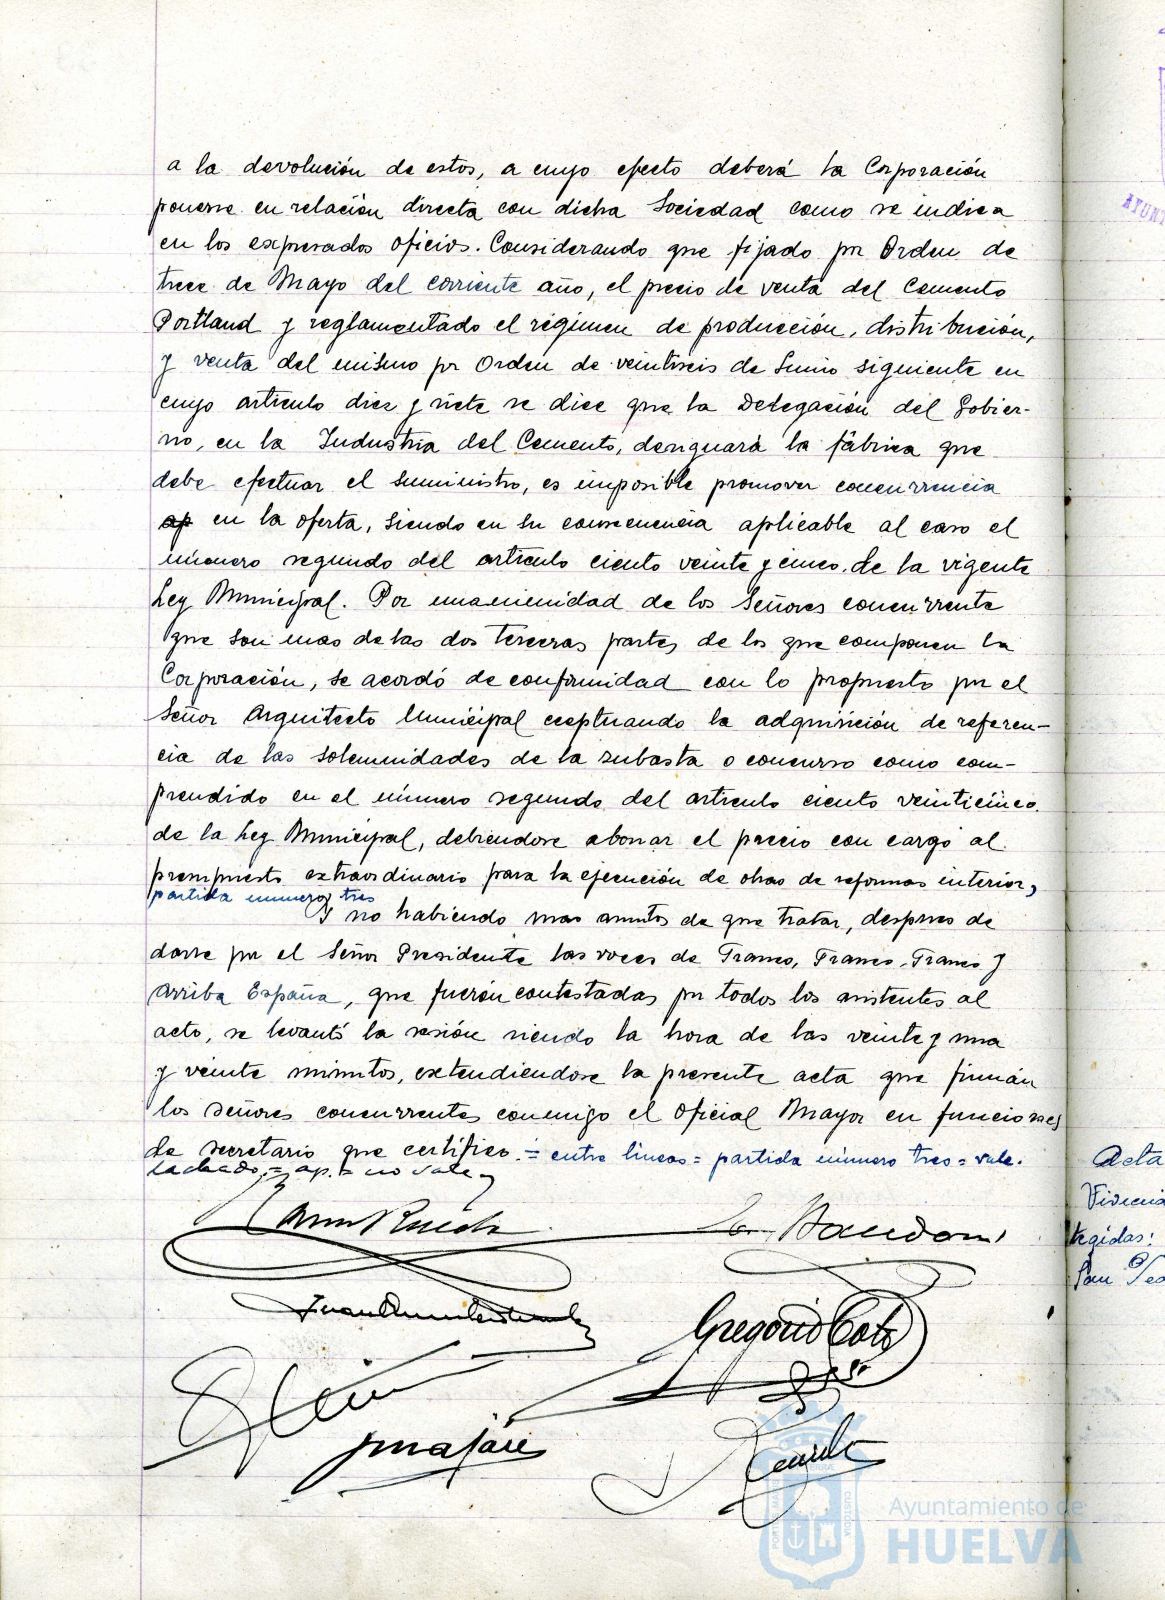 a la devolución de estos, a cuyo efecto deberá la Corporación
ponerse en relación directa con dicha Sociedad como se indica
en los expresados oficios. Considerando que fijado por Orden de
trece de Mayo del corriente año, el precio de venta del Cemento
Portland y reglamentado el régimen de producción, distribución,
y venta del mismo por Orden de veintiseis de Junio siguiente en
cuyo artículo diez y siete se dice que la Delegación del Gobier-
no, en la Industria del Cemento, designará la fábrica que
debe efectuar el suministro, es imposible promover concurrencia
ap en la oferta, siendo en su consecuencia aplicable al caso el
número segundo del artículo ciento veinte y cinco de la vigente
Ley Municipal. Por unanimidad de los Señores concurrente
que son mas de las dos terceras partes de los que componen la
Corporación, se acordó de conformidad con lo propuesto por el
Señor Arquitecto Municipal exceptuando la adquisición de referen-
cia de las solemnidades de la subasta o concurso como com-
prendido en el número segundo del artículo ciento veinticinco
de la Ley Municipal, debiendose abonar el precio con cargo al
presupuesto extraordinario para la ejecución de obras de reformas interior,
partida numero tres
Y no habiendo mas asuntos de que tratar, despues de
darse por el Señor Presidente las voces de Franco, Franco, Franco y
Arriba España, que fueron contestadas por todos los asistentes al
acto, se levantó la sesión siendo la hora de las veinte y una
y veinte minutos, extendiendose la presente acta que firman
los señores concurrentes conmigo el Oficial Mayor en funciones
de secretario que certifico. = entre lineas = partida número tres = vale.
tachado = ap = no vale
Gregorio
Acta
Vivienda
tegidas:
San
Ayuntamiento de
HUELVA